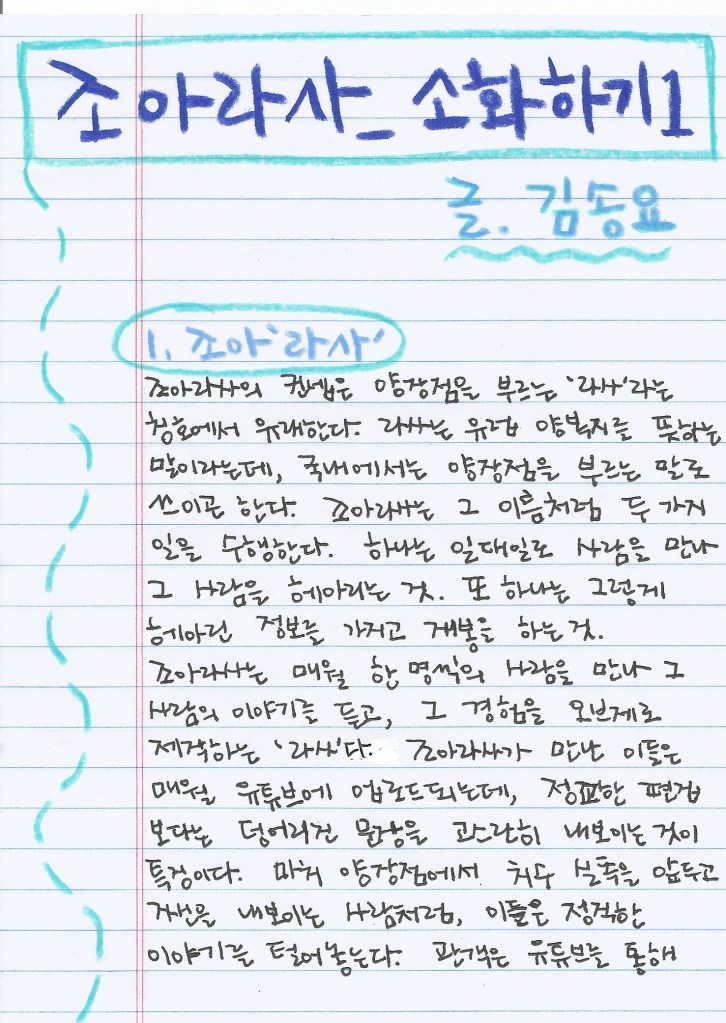 조아라사_ 소화하기1
글. 김송요
1. 조아'라사'
조아라사의 컨셉은 양장점을 부르는 '라사'라는
칭호에서 유래한다. 라사는 유럽 양복지를 뜻하는
말이라는데, 국내에서는 양장점을 부르는 말로
쓰이곤 한다. 조아라사는 그 이름처럼 두 가지
일을 수행한다. 하나는 일대일로 사람을 만나
그 사람을 헤아리는 것. 또 하나는 그렇게
헤아린 정보를 가지고 재봉을 하는 것.
조아라사는 매월 한 명씩의 사람을 만나 그
사람의 이야기를 듣고, 그 경험을 오브제로
제작하는 '라사'다. 조아라사가 만난 이들은
매월 유튜브에 업로드되는데, 정교한 편집
보다는 덩어리진 문장을 고스란히 내보이는 것이
특징이다. 마치 양장점에서 치수 실측을 앞두고
맨몸을 내보이는 사람처럼, 이들은 정직한
이야기를 털어놓는다. 관객은 유튜브를 통해